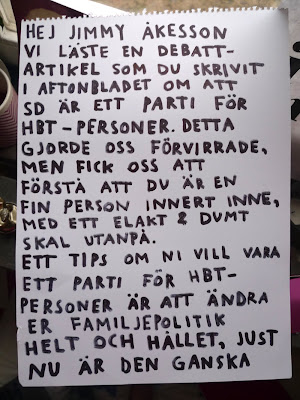 HEJ JIMMY ÅKESSON
VI LÄSTE EN DEBATT-
ARTIKEL SOM DU SKRIVIT
I AFTONBLADET OM ATT
SD ÄR ETT PARTI FÖR
HBT-PERSONER. DETTA
GJORDE OSS FÖRVIRRADE,
MEN FICK OSS ATT
FÖRSTÅ ATT DU ÄR EN
FIN PERSON INNERT INNE,
MED ETT ELAKT & DUMT
SKAL UTANPÅ.
ETT TIPS OM NI VILL VARA
ETT PARTI FÖR HBT-
PERSONER ÄR ATT ÄNDRA
ER FAMILJEPOLITIK
HELT OCH HÅLLET, JUST
NU ÄR DEN GANSKA